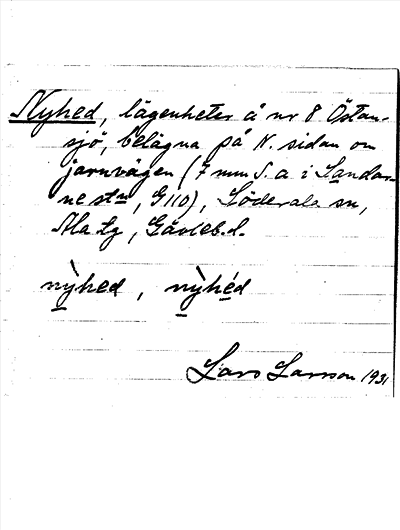 Nyhed, lägenheter å nr 8 Östan-
sjö, belägna på N. sidan om
järnvägen (7 mm S. a i Landar-
ne stn, G110), Söderala sn,
Ala tg, Gävleb. l.
nỳhed, nỳhéd
Lars Larsson 1931